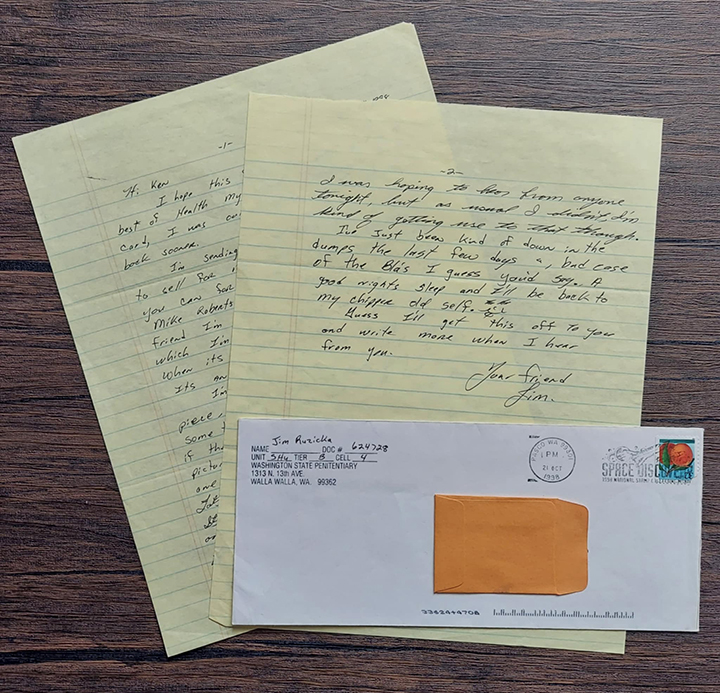 -1-
Hi Ken
I hope this
best of Health my
card, I was
back sooner.
I'm sending
to sell for
you can for
Mike Roberts
friend I'm
which I'm
when its
Its an
I'm
piece,
some
if tha
pictur
one
-2-
I was hoping to hear from anyone
tonight but as usual I didn't I'm
kind of getting use to that through.
I've just been kind of down in the
dumps the last few days a, bad case
of the Bla's I guess you'd say. A
good nights sleep and I'll be back to
my chipper old self.
Guess I'll get this off to your
and write more when I hear
from you.
Your friend
Jim.
NAME Jim Ruzicka DOC# 624728
UNIT SHU TIER B CELL 4
WASHINGTON STATE PENITENTIARY
1313 N. 13th AVE.
WALLA WALLA, WA. 99362
PASCO WA 993
PM
21 OCT
1998
SPACE DISCOVERY
3362444708